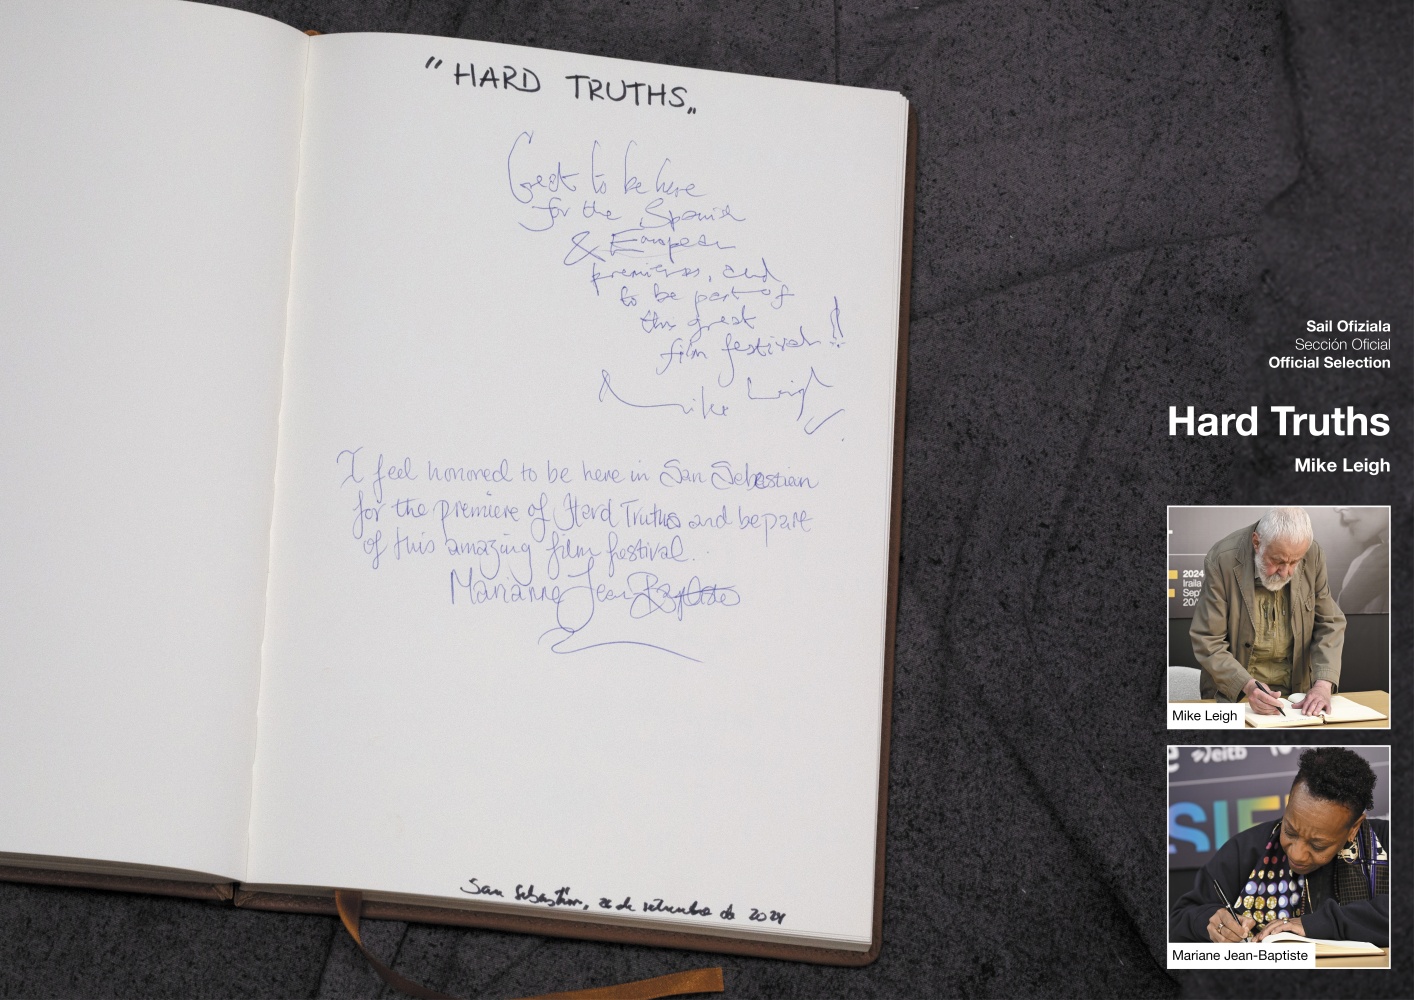 "HARD TRUTHS"
Great to be here
for the Spanish
& European
premieres, and
to be part of
this great
film festival!!
Mike Leigh
I feel honored to be here in San Sebastian
for the premiere of Hard Truths and be part
of this amazing film festival.
Marianne Jean Baptiste
San Sebastián, de setiembre de 2024
Sail Ofiziala
Sección Oficial
Official Selection
Hard Truths
Mike Leigh
2024
Iraila
Sept
20/
Mike Leigh
eitb
SIFF
Mariane Jean-Baptiste